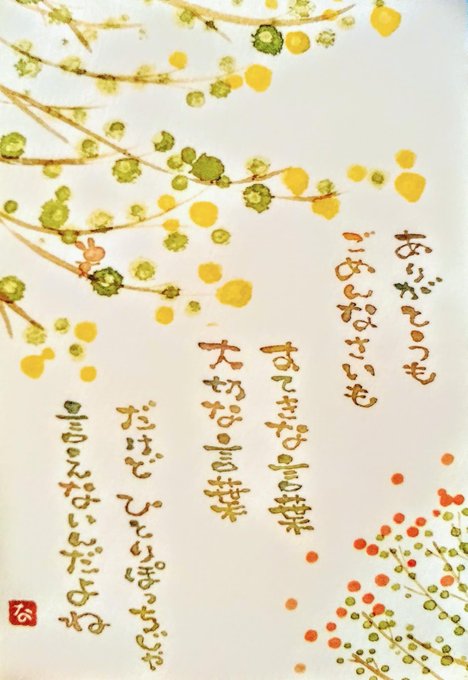 ありがとうも
ごめんなさいも
すてきな言葉
大切な言葉
だけど ひとりぽっちじゃ
言えないんだよね
な